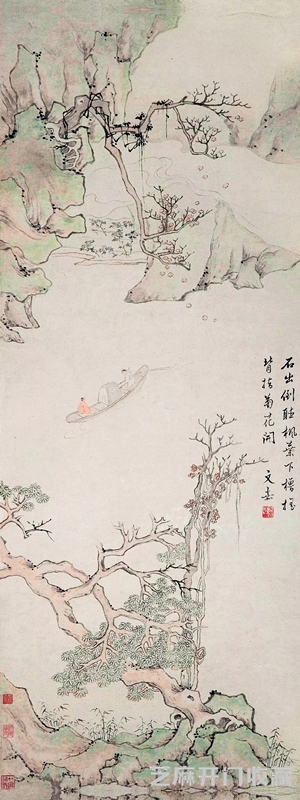 石出倒聽楓葉下櫓搖
背指菊花開 文
芝麻开门收藏